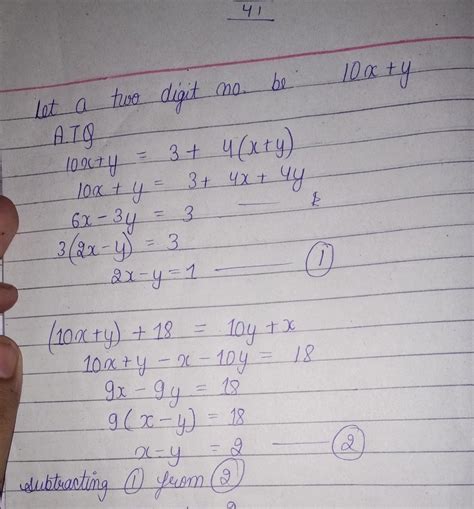 41
Let a two digit no. be 10x+y
A.T.Q
10x+y = 3+ 4(x+y)
10x+y = 3+ 4x+ 4y
6x-3y = 3
3(2x-y) = 3
2x-y=1 ①
(10x+y) + 18 = 10y+x
10x+y-x-10y = 18
9x-9y = 18
9(x-y) = 18
x-y = 2 ②
subtracting ① from ②